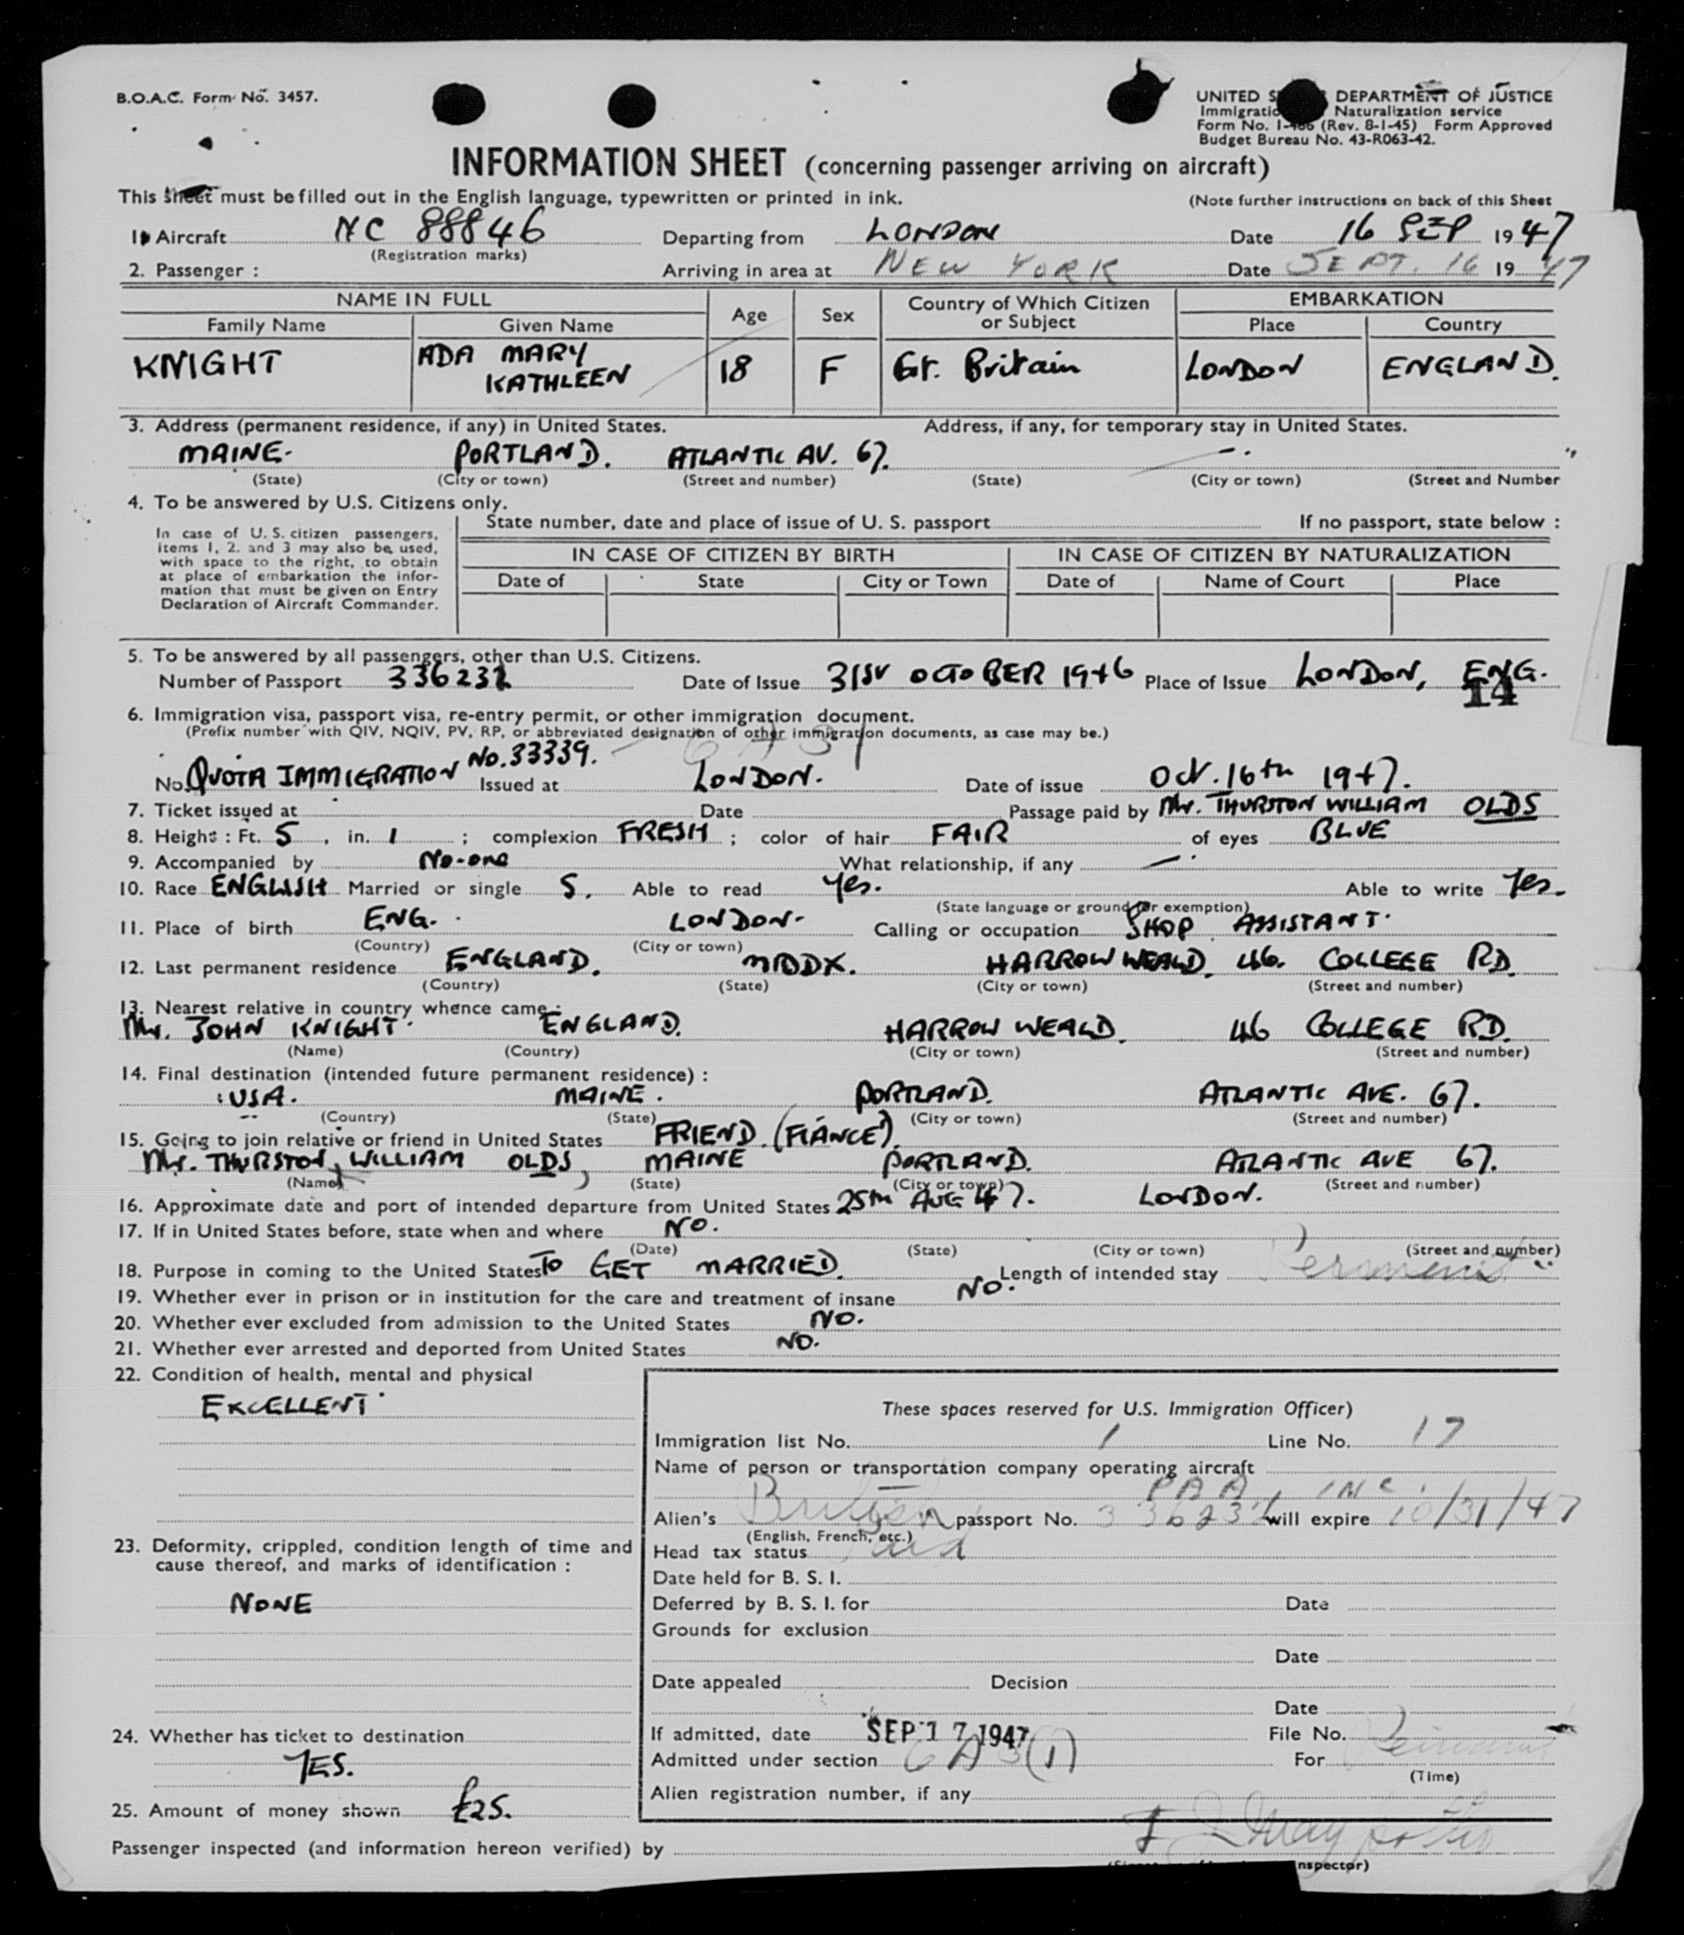 B.O.A.C. Form No. 3457.
UNITED S DEPARTMENT OF JUSTICE
Immigratio Naturalization service
Form No. I-466 (Rev. 8-1-45) Form Approved
Budget Bureau No. 43-R063-42.
INFORMATION SHEET (concerning passenger arriving on aircraft)
This Sheet must be filled out in the English language, typewritten or printed in ink. (Note further instructions on back of this Sheet
1. Aircraft NC 88846 Departing from LONDON Date 16 SEP 1947
(Registration marks)
2. Passenger : Arriving in area at NEW YORK Date SEPT. 16 1947
NAME IN FULL Age Sex Country of Which Citizen or Subject EMBARKATION
Family Name Given Name Place Country
KNIGHT ADA MARY KATHLEEN 18 F Gt. Britain LONDON ENGLAND.
3. Address (permanent residence, if any) in United States. Address, if any, for temporary stay in United States.
MAINE. PORTLAND. ATLANTIC AV. 67. — . "
(State) (City or town) (Street and number) (State) (City or town) (Street and Number
4. To be answered by U.S. Citizens only.
In case of U.S. citizen passengers,
items 1, 2. and 3 may also be used,
with space to the right, to obtain
at place of embarkation the infor-
mation that must be given on Entry
Declaration of Aircraft Commander.
State number, date and place of issue of U. S. passport If no passport, state below :
IN CASE OF CITIZEN BY BIRTH IN CASE OF CITIZEN BY NATURALIZATION
Date of State City or Town Date of Name of Court Place
5. To be answered by all passengers, other than U.S. Citizens.
Number of Passport 336232 Date of Issue 31ST OCTOBER 1946 Place of Issue LONDON, ENG.
14
6. Immigration visa, passport visa, re-entry permit, or other immigration document.
(Prefix number with QIV, NQIV, PV, RP, or abbreviated designation of other immigration documents, as case may be.)
6 A 3 1
No. QUOTA IMMIGRATION No. 33339. Issued at LONDON. Date of issue Oct. 16th 1947.
7. Ticket issued at Date Passage paid by Mr. THURSTON WILLIAM OLDS
8. Height : Ft. 5 , in. 1 ; complexion FRESH ; color of hair FAIR of eyes BLUE
9. Accompanied by No-one What relationship, if any — .
10. Race ENGLISH Married or single S. Able to read Yes. Able to write Yes.
(State language or ground for exemption)
11. Place of birth ENG. LONDON. Calling or occupation SHOP ASSISTANT.
(Country) (City or town)
12. Last permanent residence ENGLAND. MIDDX. HARROW WEALD. 46. COLLEGE RD.
(Country) (State) (City or town) (Street and number)
13. Nearest relative in country whence came :
Mr. JOHN KNIGHT. ENGLAND. HARROW WEALD. 46 COLLEGE RD.
(Name) (Country) (City or town) (Street and number)
14. Final destination (intended future permanent residence) :
USA. MAINE. PORTLAND. ATLANTIC AVE. 67.
(Country) (State) (City or town) (Street and number)
15. Going to join relative or friend in United States FRIEND. (FIANCE).
Mr. THURSTON, WILLIAM OLDS, MAINE PORTLAND. ATLANTIC AVE 67.
(Name) (State) (City or town) (Street and number)
16. Approximate date and port of intended departure from United States 25th AUG 47. LONDON.
17. If in United States before, state when and where NO.
(Date) (State) (City or town) (Street and number)
18. Purpose in coming to the United States TO GET MARRIED. Length of intended stay Permanent
19. Whether ever in prison or in institution for the care and treatment of insane NO.
20. Whether ever excluded from admission to the United States NO.
21. Whether ever arrested and deported from United States NO.
22. Condition of health, mental and physical
EXCELLENT.
These spaces reserved for U.S. Immigration Officer)
Immigration list No. 1 Line No. 17
Name of person or transportation company operating aircraft
PAA INC.
Alien's British passport No. 336232 will expire 10/31/47
(English, French, etc.)
23. Deformity, crippled, condition length of time and
cause thereof, and marks of identification :
NONE
Head tax status Paid
Date held for B. S. I.
Deferred by B. S. I. for Date
Grounds for exclusion
Date
Date appealed Decision
Date
24. Whether has ticket to destination
YES.
If admitted, date SEP 17 1947 File No.
Admitted under section 6A3(1) For Permanent
(Time)
Alien registration number, if any
25. Amount of money shown £25.
Passenger inspected (and information hereon verified) by
nspector)